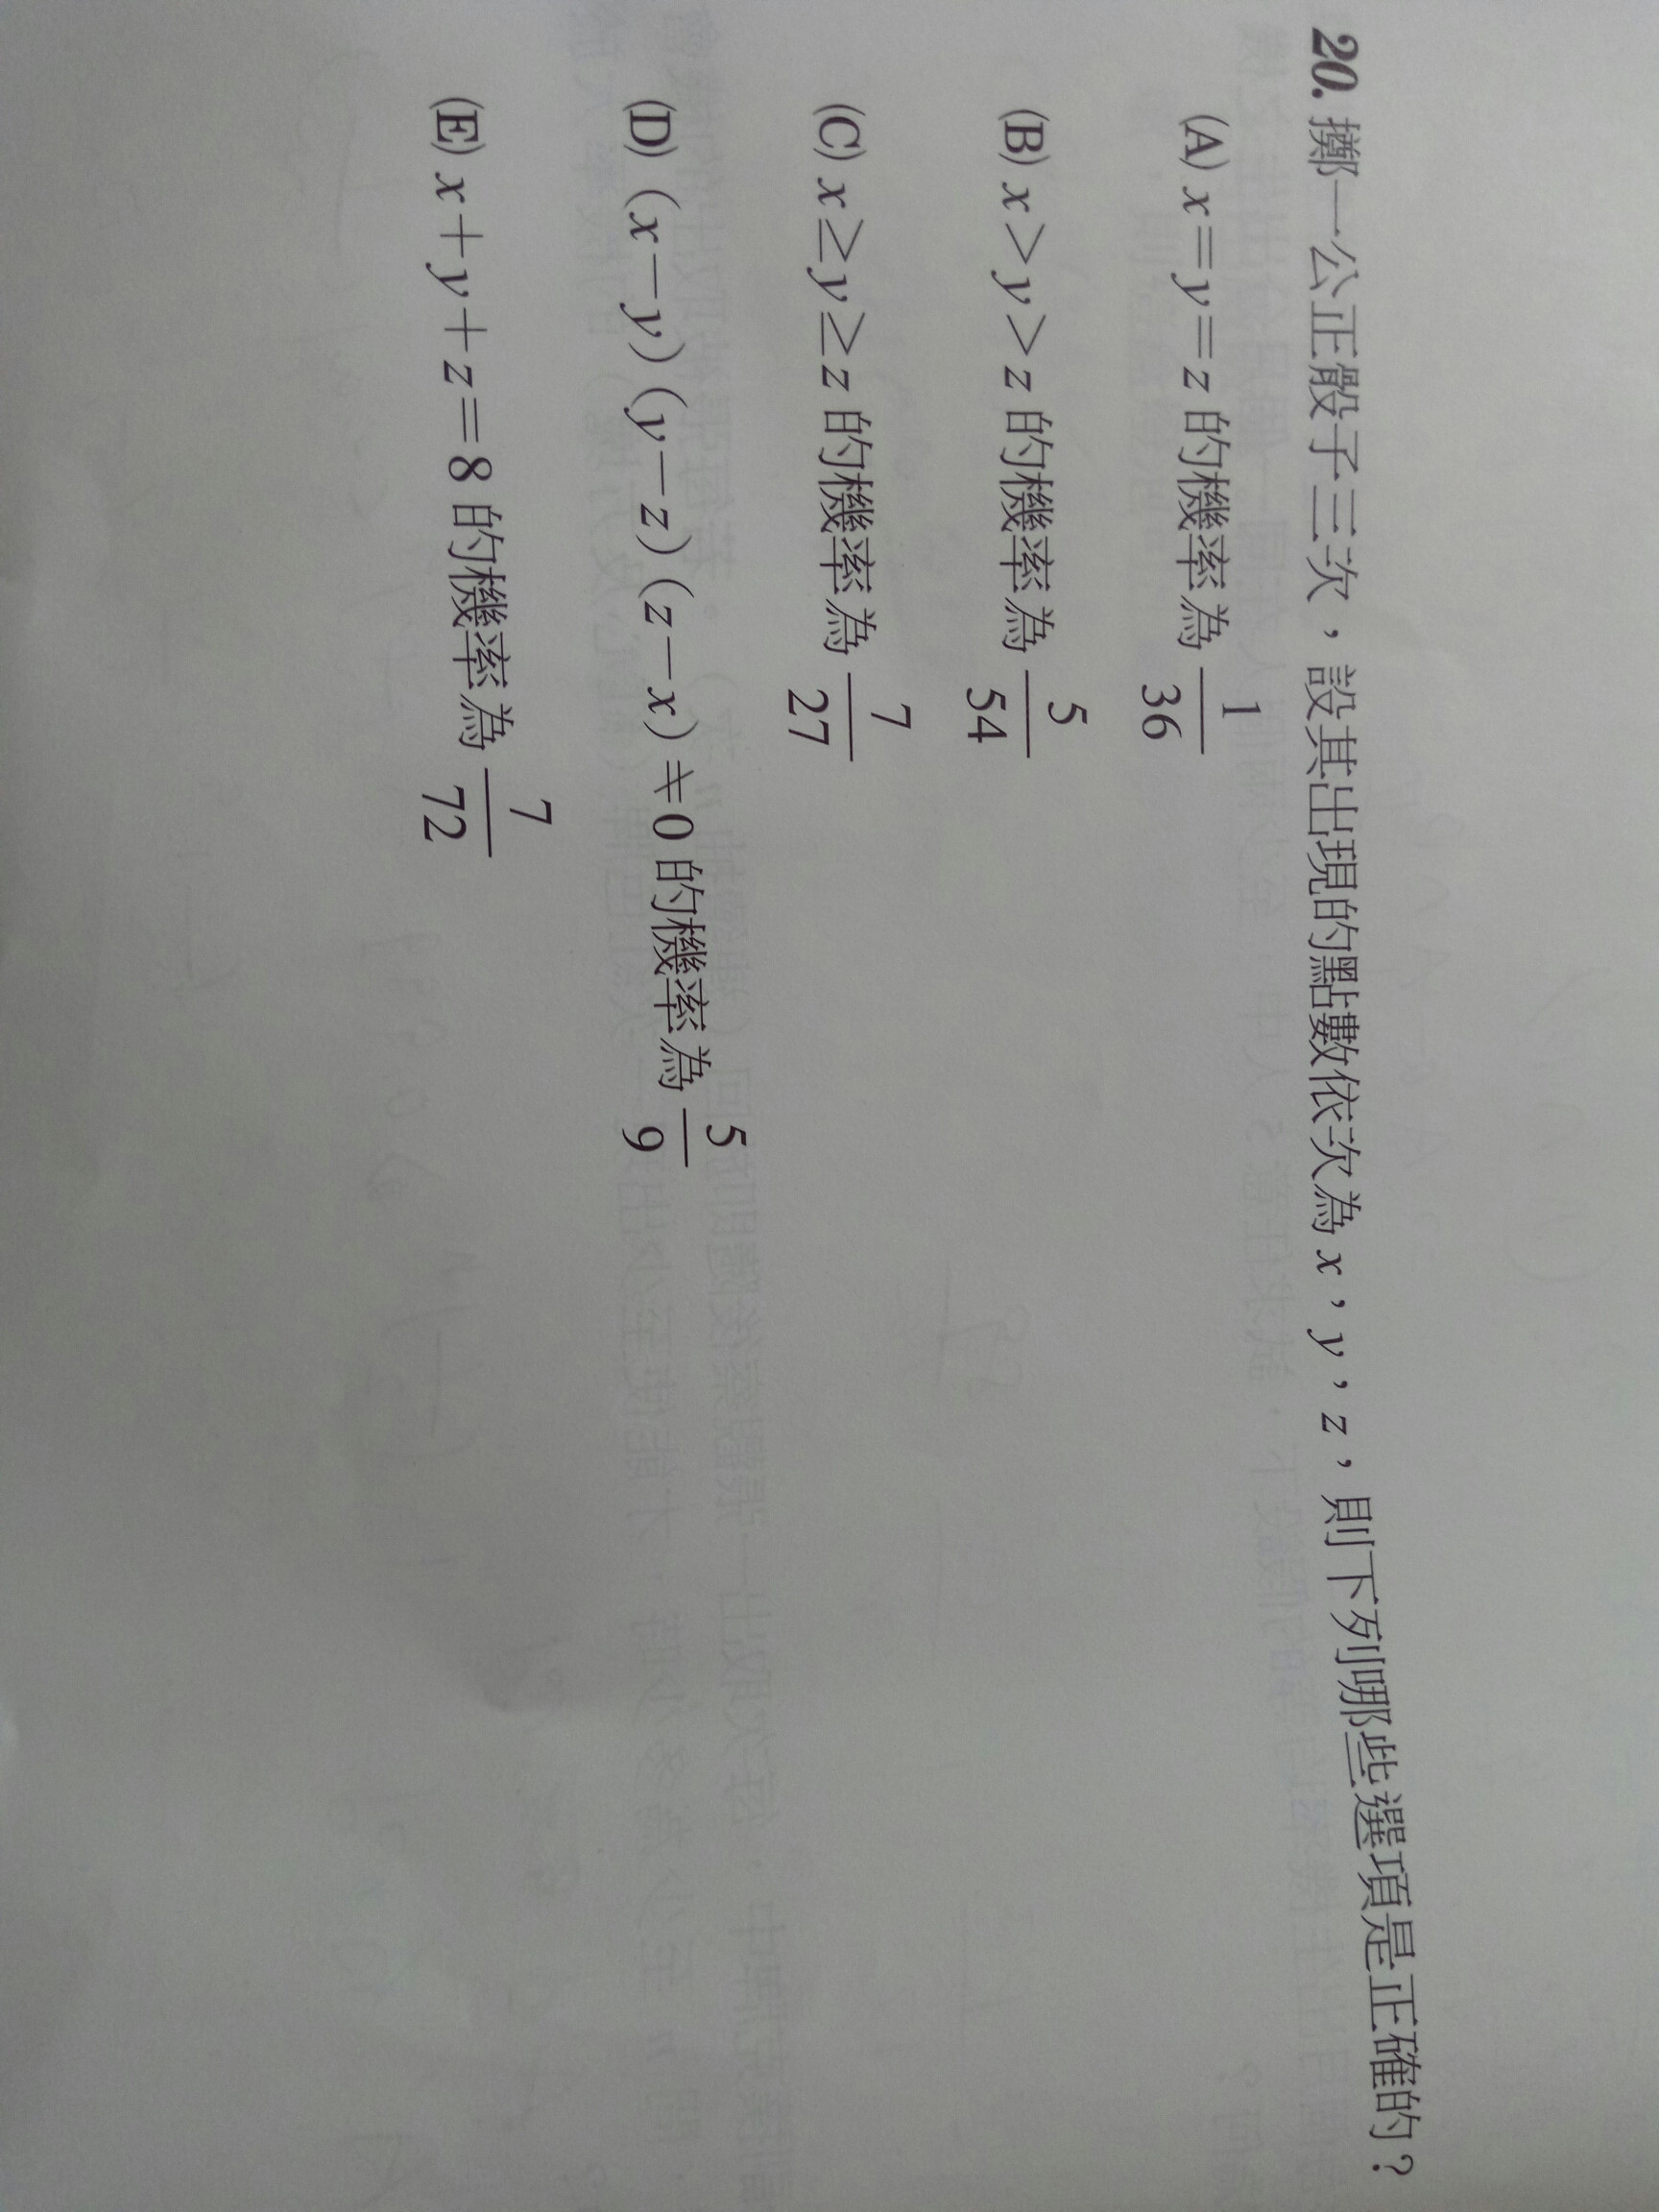 20. 擲一公正骰子三次，設其出現的點數依次為 x，y，z，則下列哪些選項是正確的？
(A) x=y=z 的機率為 1/36
(B) x>y>z 的機率為 5/54
(C) x≥y≥z 的機率為 7/27
(D) (x−y)(y−z)(z−x)≠0 的機率為 5/9
(E) x+y+z=8 的機率為 7/72